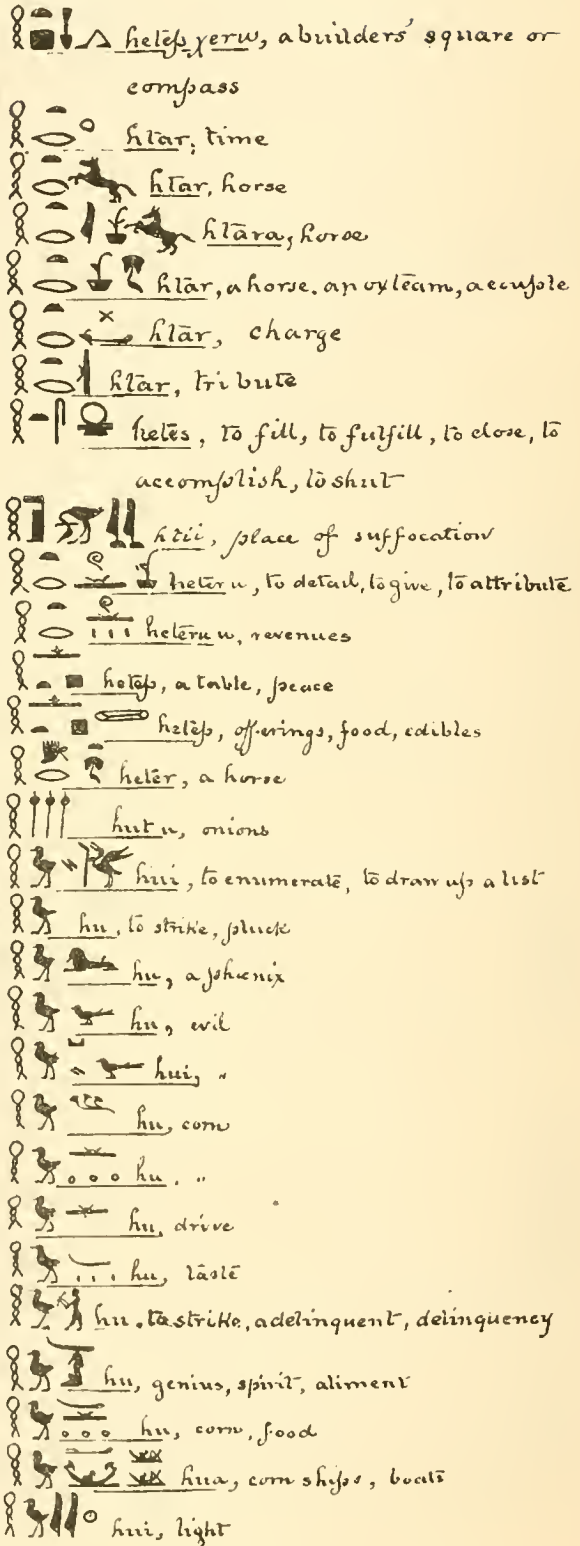 hetep χeru, a builders' square or
compass
htar, time
htar, horse
htāra, horse
htār, a horse. an ox team, a couple
htār, charge
htār, tribute
hetes, to fill, to fulfill, to close, to
accomplish, to shut
htii, place of suffocation
heteru, to detail, to give, to attribute
heteru u, revenues
hotep, a table, peace
hetep, offerings, food, edibles
heter, a horse
hut u, onions
hui, to enumerate, to draw up a list
hu, to strike, pluck
hu, a phœnix
hu, evil
hui, "
hu, corn
hu, "
hu, drive
hu, taste
hu, to strike, a delinquent, delinquency
hu, genius, spirit, aliment
hu, corn, food
hua, corn ships, boats
hui, light